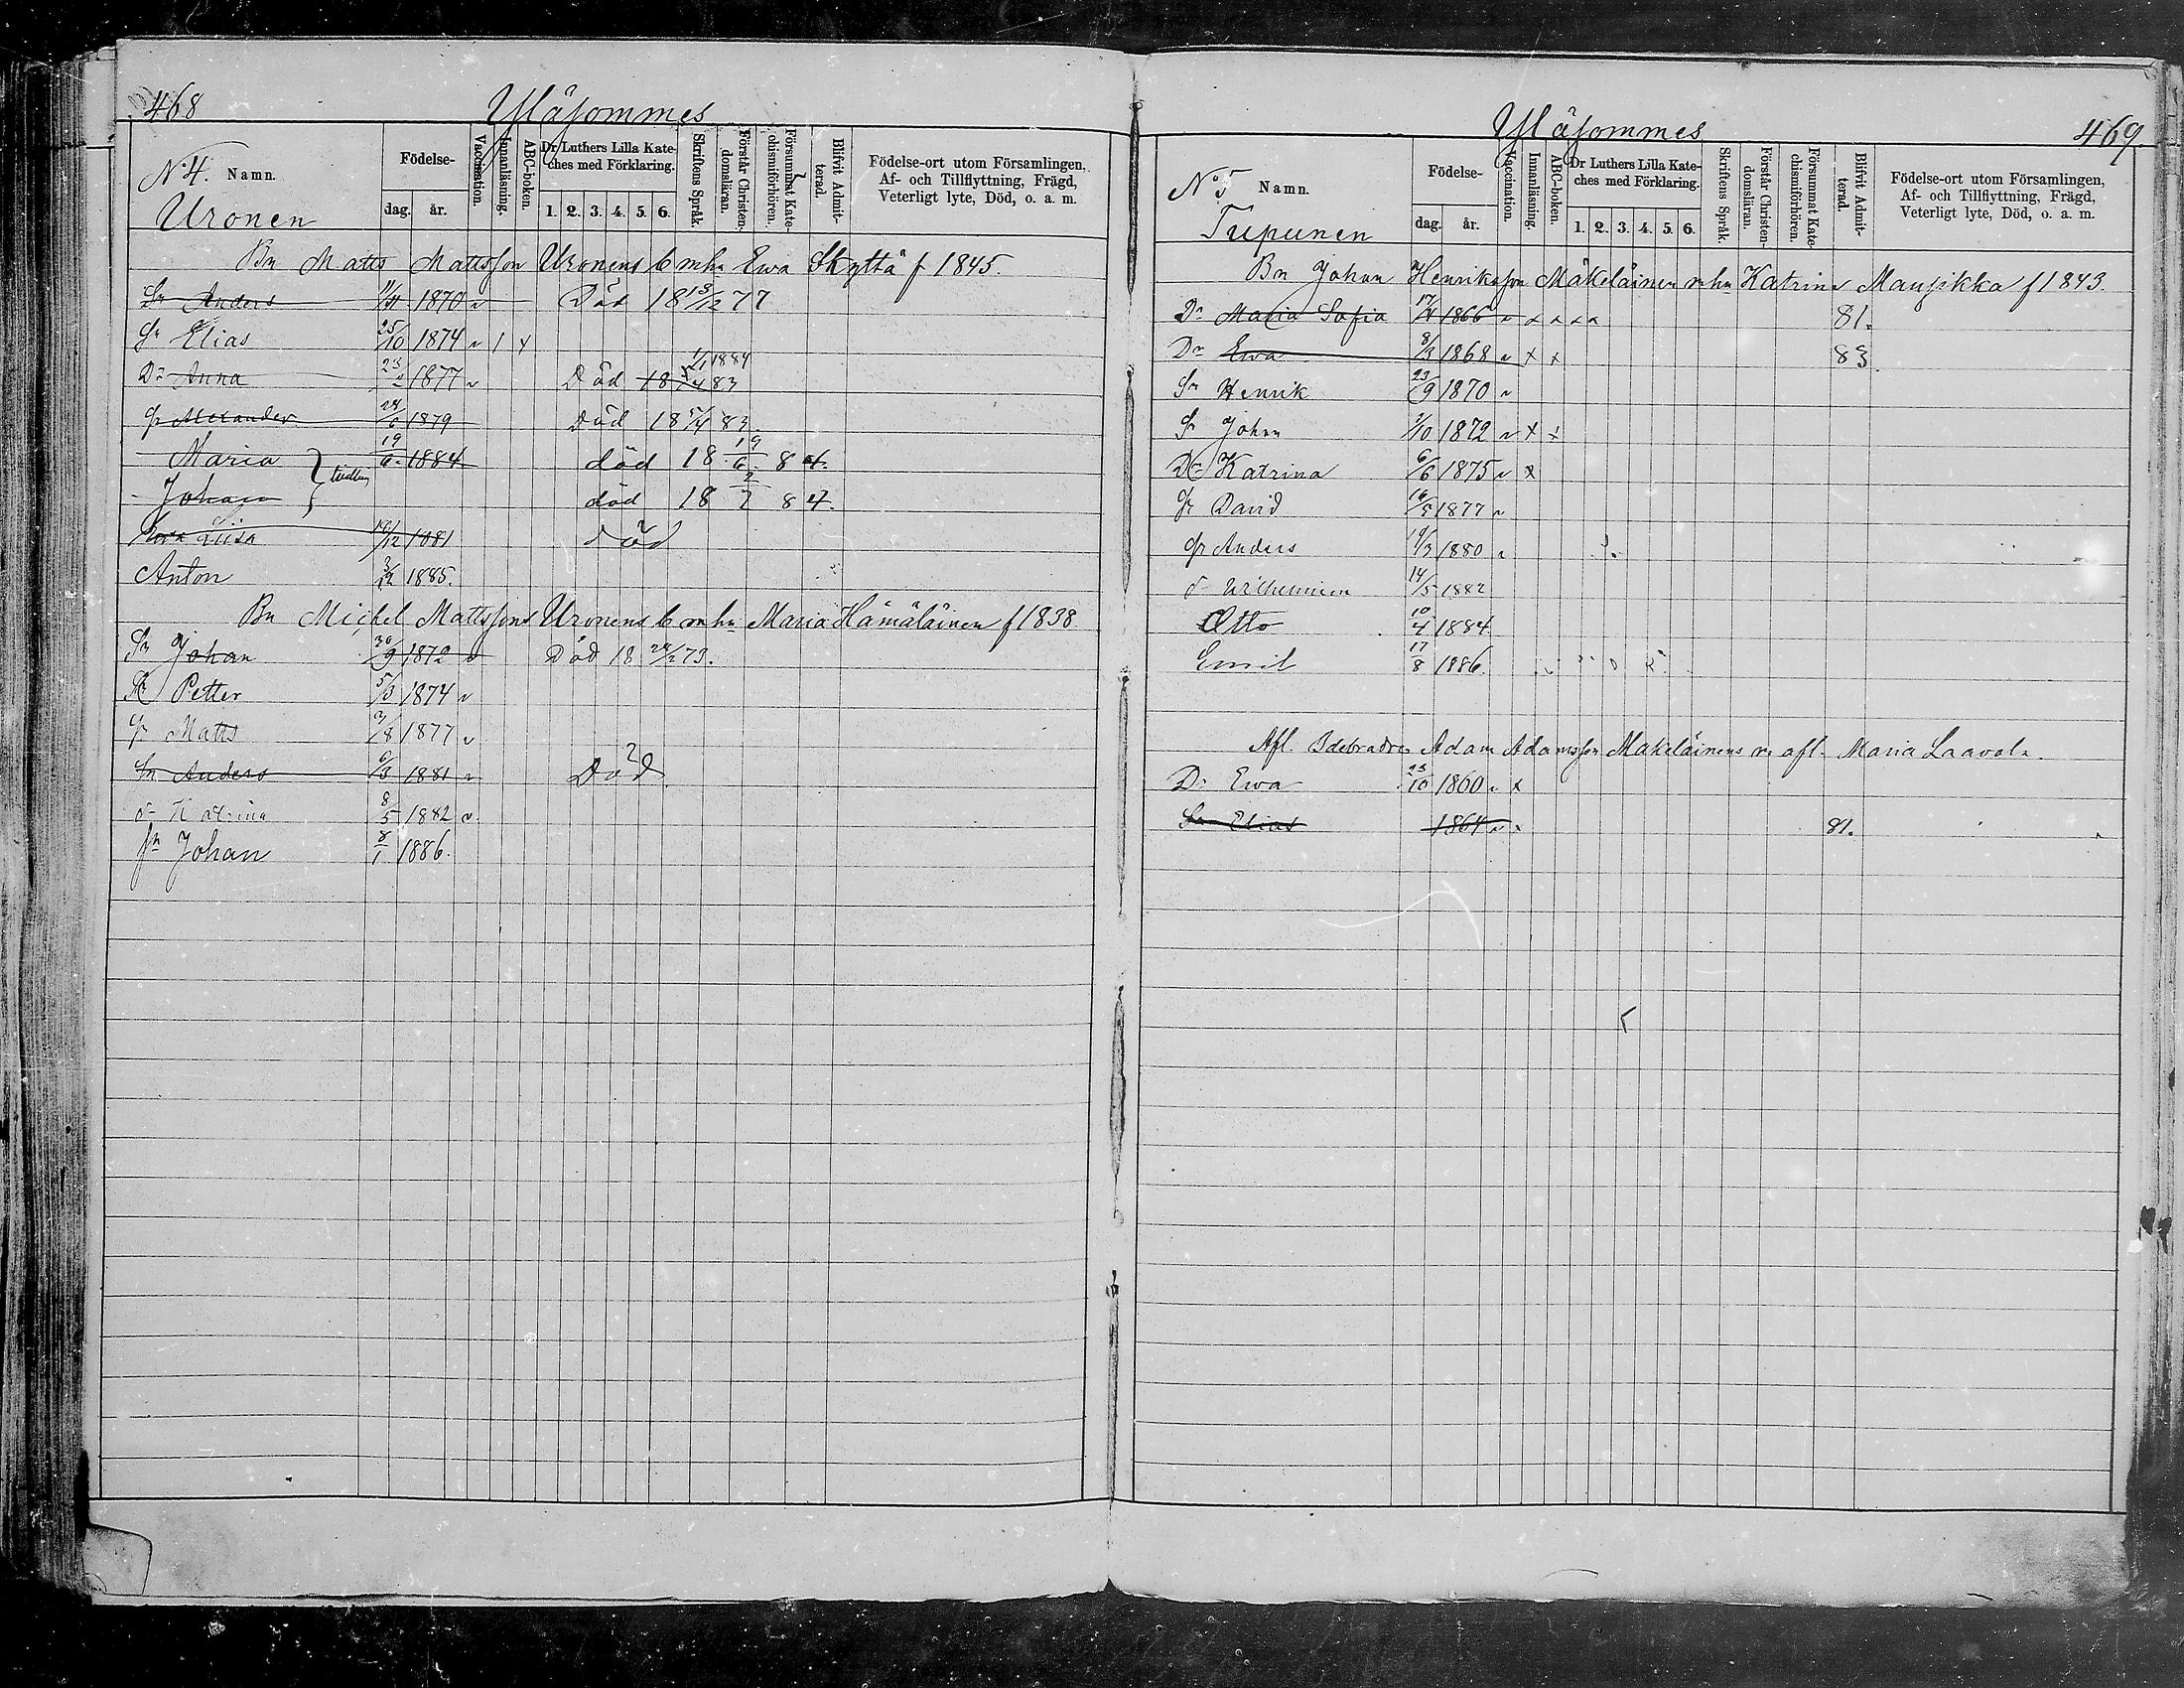 468
Yläsommes
N:o 4. Namn.
Födelse-
dag. år.
Vaccination.
Innanläsning.
ABC-boken.
Dr Luthers Lilla Kate-
ches med Förklaring.
1. 2. 3. 4. 5. 6.
Skriftens Språk.
Förstår Christen-
domsläran.
Försummat Kate-
chismiförhören.
Blifvit Admit-
terad.
Födelse-ort utom Församlingen,
Af- och Tillflyttning, Frägd,
Veterligt lyte, Död, o. a. m.
Uronen
Bn Matts Mattsson Uronens b mhu Ewa Skyttä f 1845.
Sn Anders 11/11 1870 v Död 18 13/12 77
Sn Elias 25/10 1874 v
1/1 1884
Dr Anna 1877 v Död 18 5/4 83
Sn Alexander 24/6 1879 Död 18 5/4 83.
Maria 19/6 1884 död 18 19/6 84.
tvilling
Johan död 18 2/7 84.
Liisa 1881 död
Anton 3/12 1885.
Bn Michel Mattssons Uronens b mhu Maria Hämäläinen f 1838
Sn Johan 30/9 1872 v Död 18 73.
Sn Petter 5/3 1874 v
Sn Matts 3/8 1877 v
Sn Anders 6/3 1881 v Död
d- Katrina 8/5 1882 v.
sn Johan 8/1 1886.
Yläsommes
469.
N:o 5 Namn.
Födelse-
dag. år.
Vaccination.
Innanläsning.
ABC-boken.
Dr Luthers Lilla Kate-
ches med Förklaring.
1. 2. 3. 4. 5. 6.
Skriftens Språk.
Förstår Christen-
domsläran.
Försummat Kate-
chismiförhören.
Blifvit Admit-
terad.
Födelse-ort utom Församlingen,
Af- och Tillflyttning, Frägd,
Veterligt lyte, Död, o. a. m.
Tupunen
Bn Johan Henriksson Mäkeläinen mhu Katrina Maujikka f 1843.
Dr Maria Sofia 17/4 1866 v x x x x 81.
Dr Ewa 8/3 1868 v x x 83
Sn Henrik 23/9 1870 v
Sn Johan 1872 v x x
Dr Katrina 6/6 1875 v x
Sn David 16/5 1877 v
Sn Anders 1880 v
d- Wilhelmina 14/5 1882
Otto 10/4 1884.
Emil 17/8 1886.
Afl. Adam Adamsson Makeläinens m afl. Maria Laavola.
Dr Ewa 23/10 1860 v x
Sn Elias 1864 v x 81.